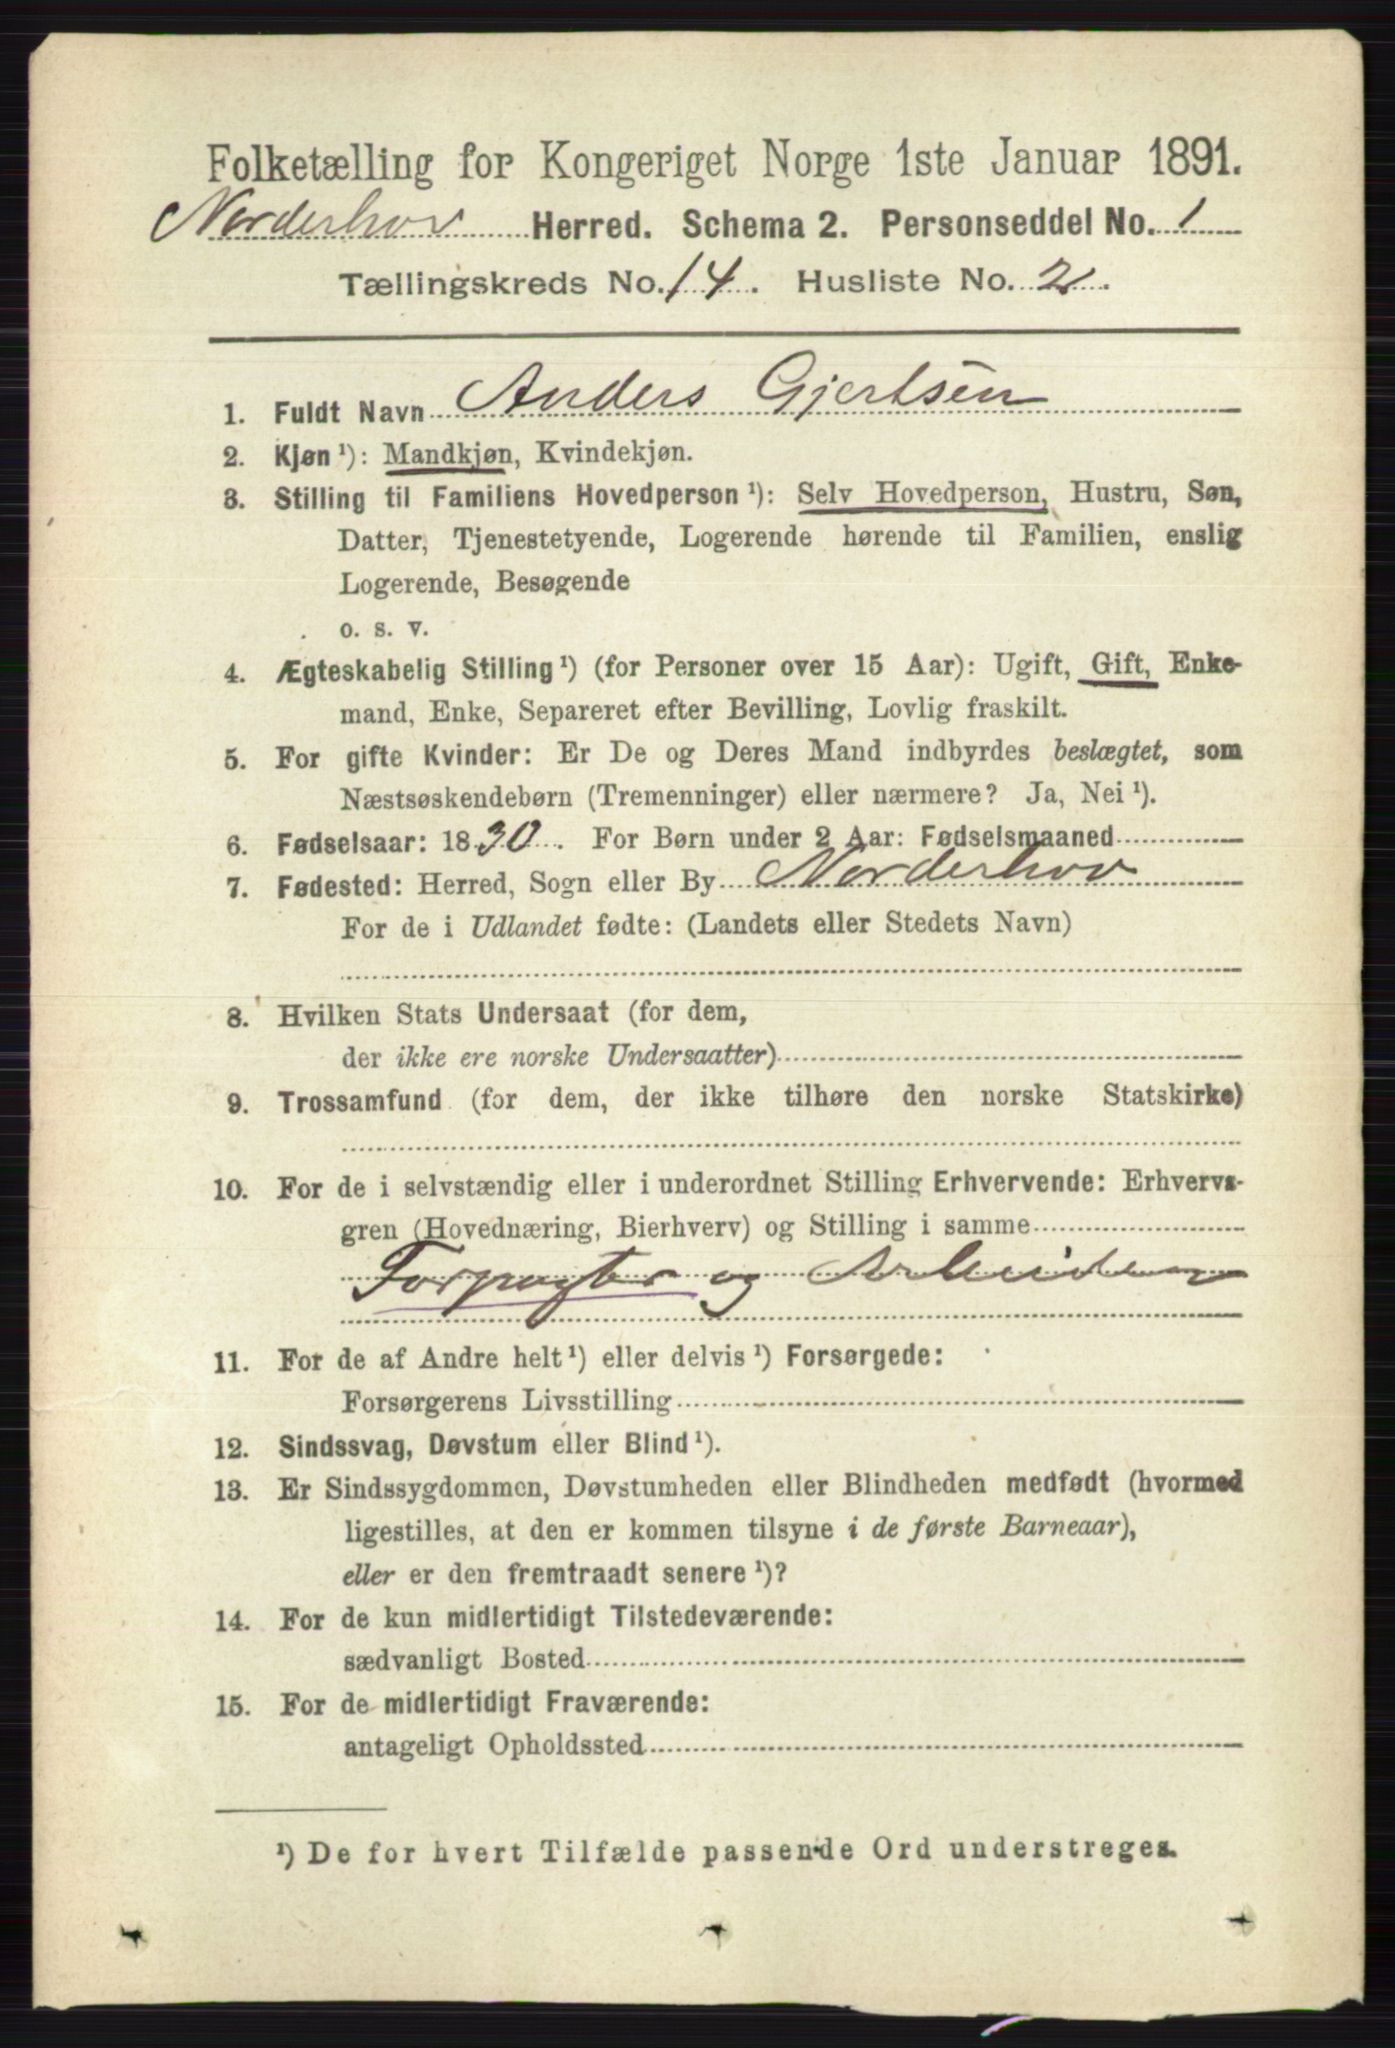 Folketælling for Kongeriget Norge 1ste Januar 1891.
Norderhov Herred. Schema 2. Personseddel No. 1
Tællingskreds No. 14. Husliste No. 2.
1. Fuldt Navn Anders Gjertsen
2. Kjøn ¹): Mandkjøn, Kvindekjøn.
3. Stilling til Familiens Hovedperson ¹): Selv Hovedperson, Hustru, Søn,
Datter, Tjenestetyende, Logerende hørende til Familien, enslig
Logerende, Besøgende
o. s. v.
4. Ægteskabelig Stilling ¹) (for Personer over 15 Aar): Ugift, Gift, Enke-
mand, Enke, Separeret efter Bevilling, Lovlig fraskilt.
5. For gifte Kvinder: Er De og Deres Mand indbyrdes beslægtet, som
Næstsøskendebørn (Tremenninger) eller nærmere? Ja, Nei ¹).
6. Fødselsaar: 1830. For Børn under 2 Aar: Fødselsmaaned
7. Fødested: Herred, Sogn eller By Norderhov
For de i Udlandet fødte: (Landets eller Stedets Navn)
8. Hvilken Stats Undersaat (for dem,
der ikke ere norske Undersaatter)
9. Trossamfund (for dem, der ikke tilhøre den norske Statskirke)
10. For de i selvstændig eller i underordnet Stilling Erhvervende: Erhvervs-
gren (Hovednæring, Bierhverv) og Stilling i samme
Forpagter og Arbeider
11. For de af Andre helt ¹) eller delvis ¹) Forsørgede:
Forsørgerens Livsstilling
12. Sindssvag, Døvstum eller Blind ¹).
13. Er Sindssygdommen, Døvstumheden eller Blindheden medfødt (hvormed
ligestilles, at den er kommen tilsyne i de første Barneaar),
eller er den fremtraadt senere ¹)?
14. For de kun midlertidigt Tilstedeværende:
sædvanligt Bosted
15. For de midlertidigt Fraværende:
antageligt Opholdssted
¹) De for hvert Tilfælde passende Ord understreges.